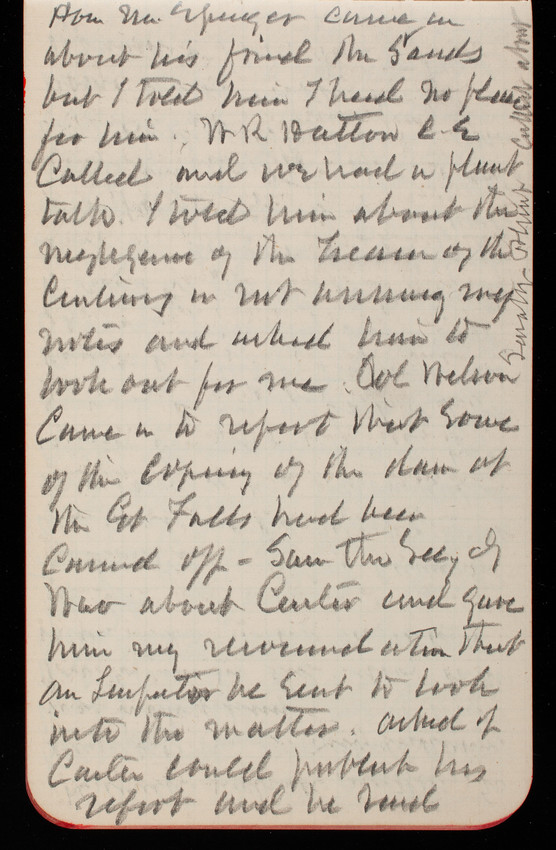 Hon Mr Springer came in
about his friend Mr Sands
but I told him I had no place
for him. W R Hutton C E
Called and we had a pleast
talk. I told him about the
negligence of the Treasu of the
Century in not answering my
notes and asked him to
look out for me. Col Wilson
Came in to report that some
of the Coping of the dam at
the Gt Falls had been
carried off - Saw the Secy of
War about Carter and gave
him my recommendation that
an Inspector be sent to look
into the matter. asked if
Carter could publish his
report and he said
Senator called about